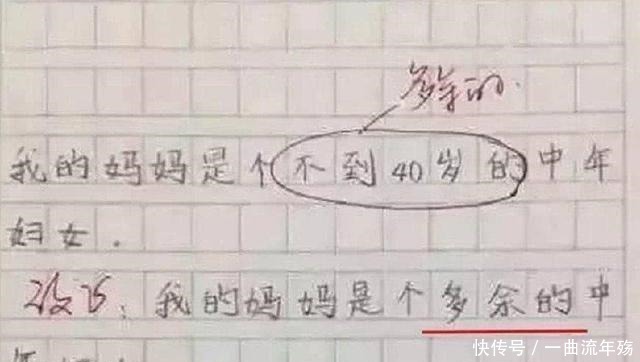 多余的.
我的妈妈是个不到40岁的中年
妇女.
改巧:我的妈妈是个多余的中
快传号/一曲流年殇